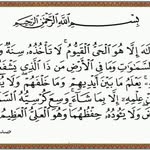 بِسْمِ اللَّهِ الرَّحْمَٰنِ الرَّحِيمِ
إِلَّا هُوَ الْحَيُّ الْقَيُّومُ لَا تَأْخُذُهُ سِنَةٌ
السَّمَاوَاتِ وَمَا فِي الْأَرْضِ مَن ذَا الَّذِي
يَعْلَمُ مَا بَيْنَ أَيْدِيهِمْ وَمَا خَلْفَهُمْ
إِلَّا بِمَا شَاءَ وَسِعَ كُرْسِيُّهُ
وَلَا يَئُودُهُ حِفْظُهُمَا وَهُوَ الْعَلِيُّ الْعَظِيمُ